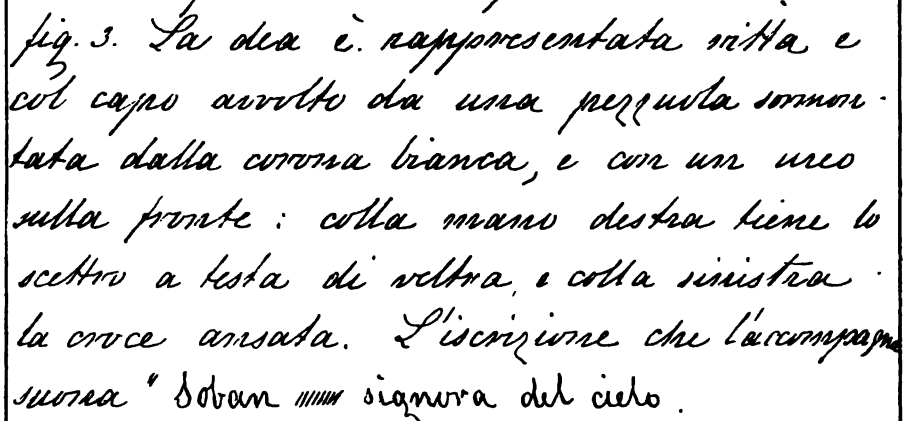 fig. 3. La dea è. rappresentata ritta e
col capo avvolto da una pezzuola sormon-
tata dalla corona bianca, e con un ureo
sulla fronte : colla mano destra tiene lo
scettro a testa di veltra, e colla sinistra
la croce ansata. L'iscrizione che l'accompagna
suona " Soban signora del cielo.